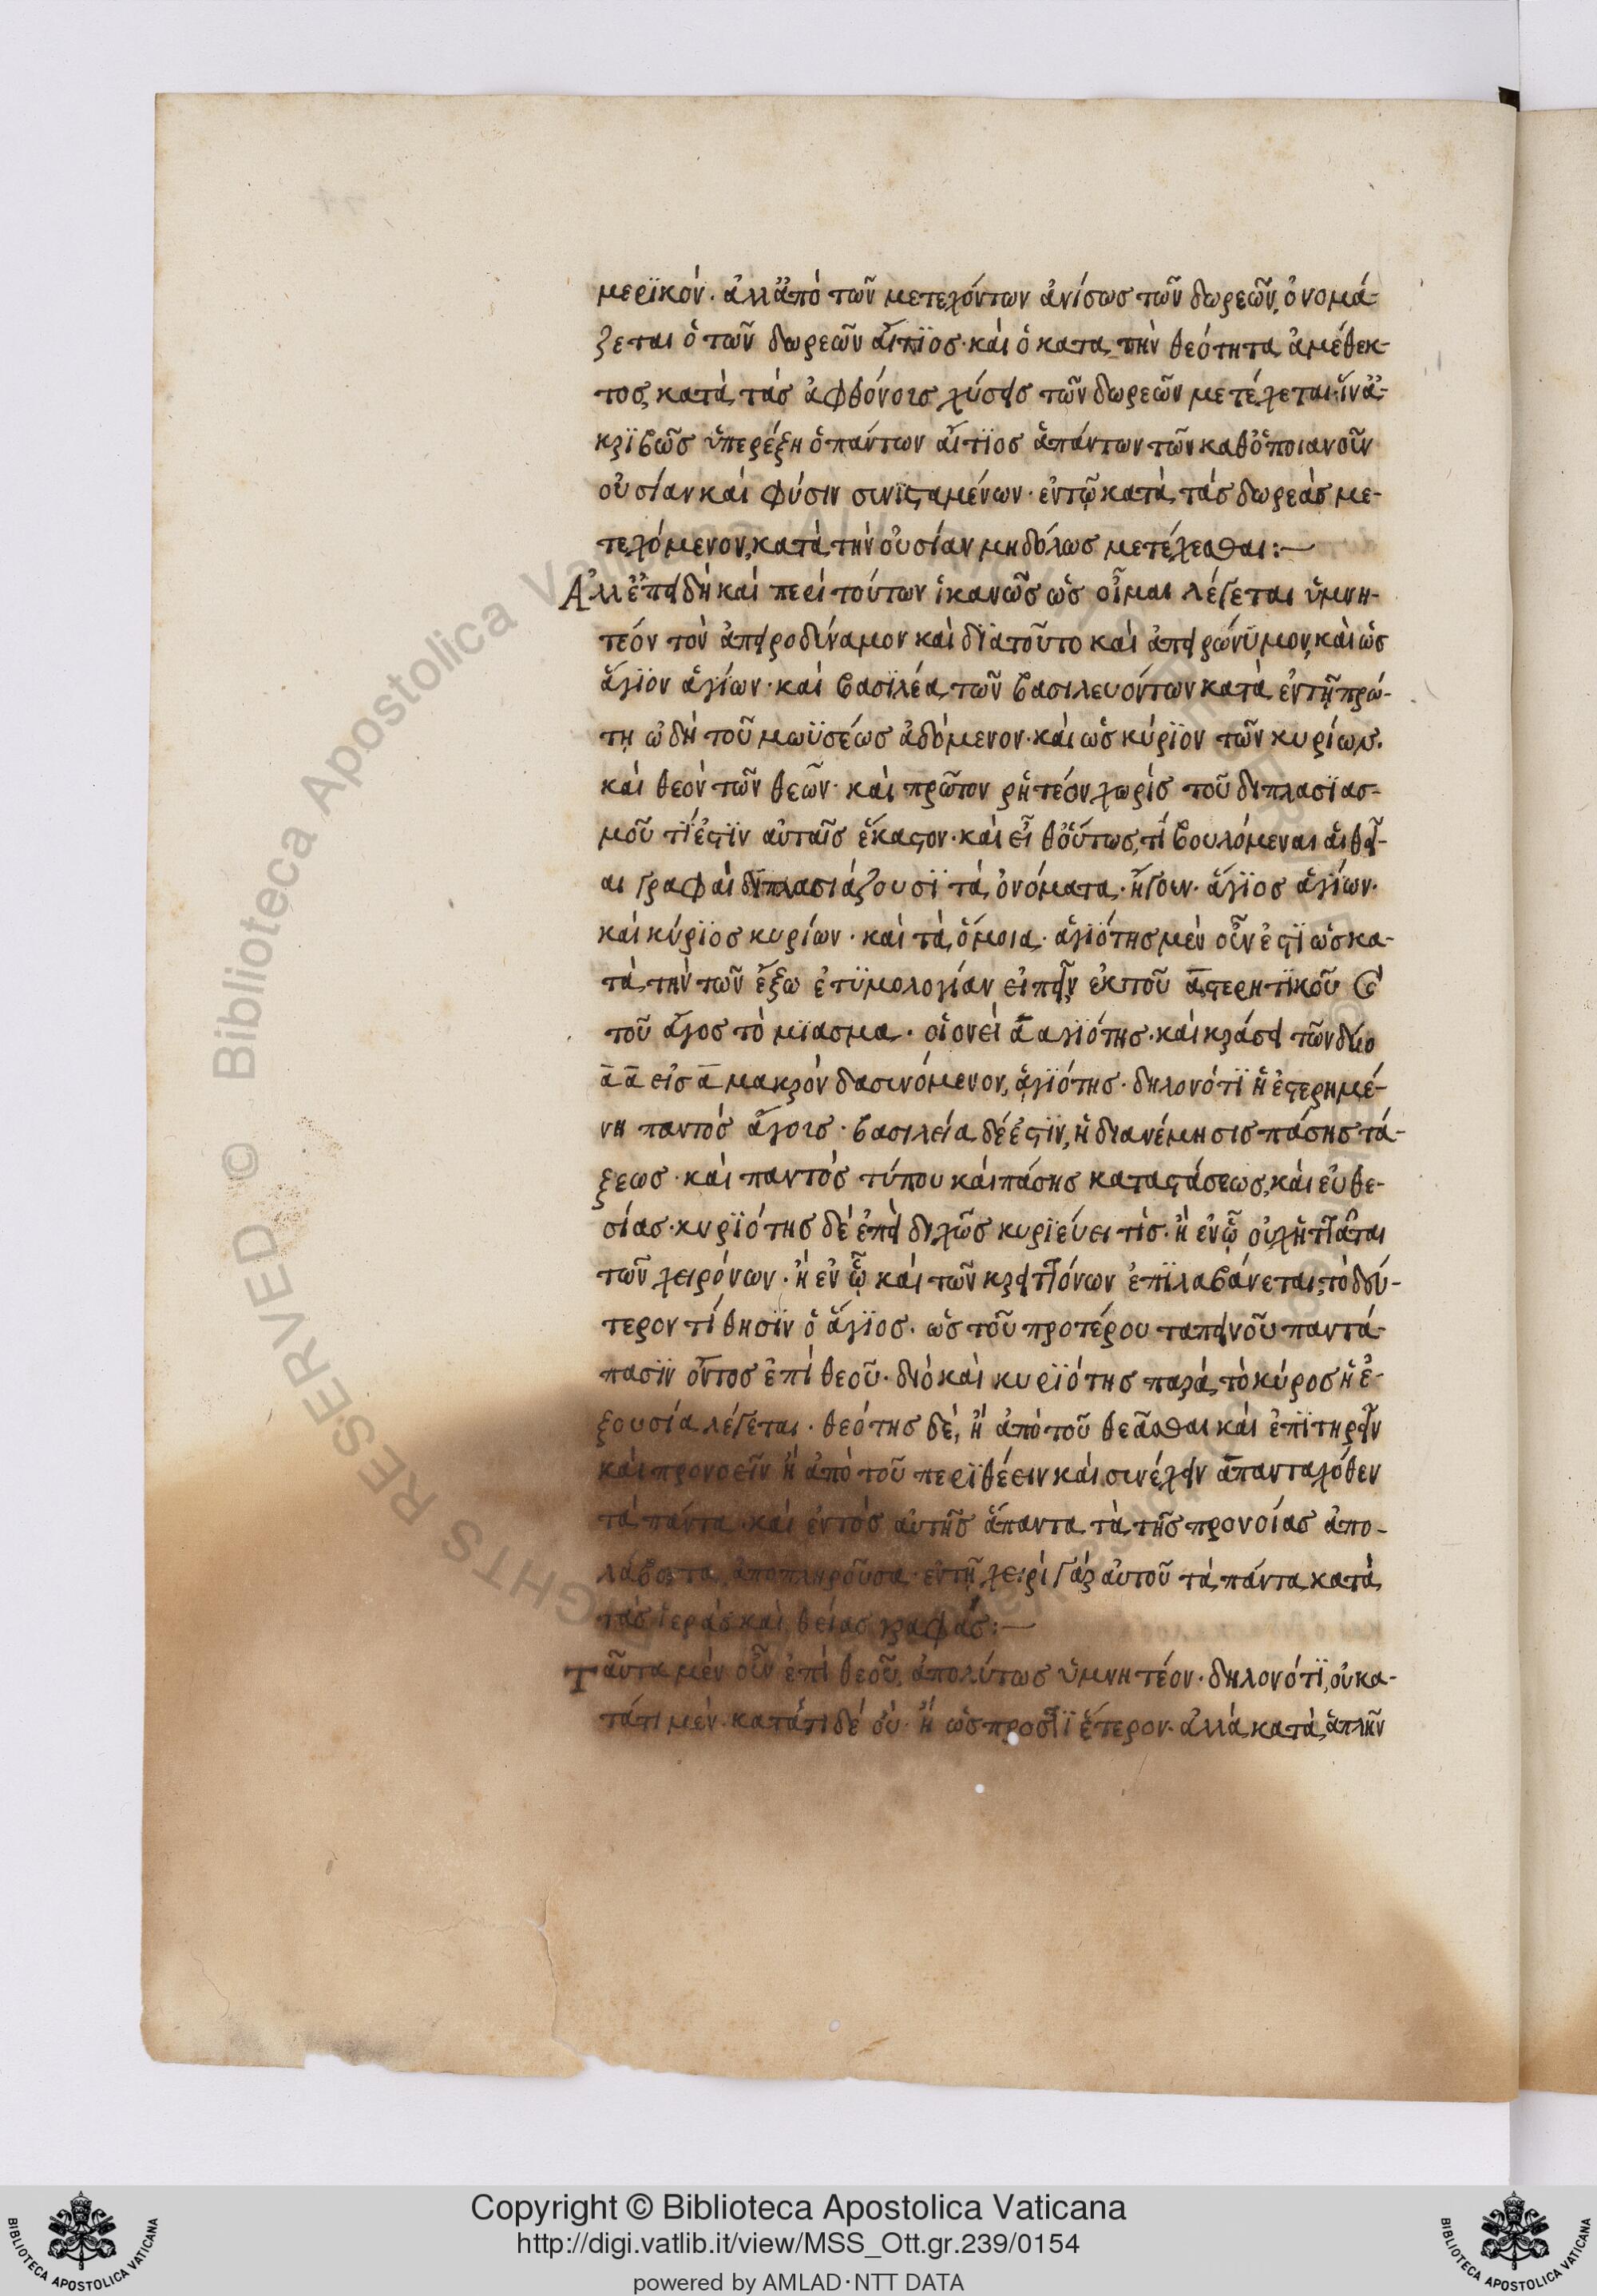 μερϊκόν. ἀλλ' ἀπὸ τῶν μετεχόντων ἀνίσως τῶν δωρεῶν, ὀνομά-
ζεται ὁ τῶν δωρεῶν αἴτϊος· καὶ ὁ κατα τὴν θεότητα ἀμέθεκ-
τος, κατὰ τὰς ἀφθόνους χύσεις τῶν δωρεῶν μετέχεται· ἵν' ἀ-
κρϊβῶς ὑπερέξη ὁ πάντων αἴτϊος ἁπάντων τῶν καθ' ὁποιανοῦν
οὐσίαν καὶ φύσιν συνϊσταμένων· ἐν τῷ κατὰ τὰς δωρεὰς με-
τεχόμενον, κατὰ τὴν οὐσίαν μηδόλως μετέχεσθαι:—
Ἀλλ' ἐπειδὴ καὶ περὶ τούτων ἱκανῶς ὡς οἶμαι λέγεται ὑμνη-
τέον τὸν ἀπειροδύναμον καὶ δϊατοῦτο καὶ ἀπειρώνϋμον, καὶ ὡς
ἅγϊον ἁγίων· καὶ βασϊλέα τῶν βασιλευόντων κατὰ ἐν τῇ πρώ-
τῃ ὠδῇ τοῦ μωϋσέως ἀδόμενον· καὶ ὡς κύρϊον τῶν κυρίων.
καὶ θεὸν τῶν θεῶν· καὶ πρῶτον ρητέον χωρὶς τοῦ διπλασϊασ-
μοῦ τί ἐστϊν αὐταῖς ἕκαστον· καὶ εἶθ' οὕτως, τί βουλόμεναι αἱ θεῖ-
αι γραφαὶ διπλασιάζουσϊ τὰ ὀνόματα· ἤγουν· ἅγϊος ἁγίων·
καὶ κύρϊος κυρίων· καὶ τὰ ὅμοια· ἁγϊότης μὲν οὖν ἐστϊ ὡς κα-
τὰ τὴν τῶν ἔξω ἐτϋμολογίαν εἰπεῖν ἐκ τοῦ α στερητϊκοῦ καὶ
τοῦ ἄγος τὸ μϊασμα· οἱονεὶ α αγϊότης· καὶ κράσει τῶν δύο
ᾱ ᾱ εἰς ᾱ μακρὸν δασυνόμενον, ἁγϊότης· δηλονότϊ ἡ ἐστερημέ-
νη παντὸς ἄγους· βασιλεία δέ ἐστϊν, ἡ διανέμησις πάσης τά-
ξεως· καὶ παντὸς τύπου καὶ πάσης καταστάσεως, καὶ εὐθε-
σίας· κυρϊότης δὲ ἐπεὶ διχῶς κυρϊεύει τὶς· ἢ ἐν ᾧ οὐχ ἡττᾶται
τῶν χειρόνων· ἢ ἐν ᾧ καὶ τῶν κρειττόνων ἐπϊλαβάνεται, τὸ δεύ-
τερον τίθησϊν ὁ ἅγϊος· ὡς τοῦ προτέρου ταπεινοῦ παντά-
πασϊν ὄντος ἐπὶ θεοῦ· διὸ καὶ κυρϊότης παρὰ τὸ κύρος ἡ ἐ-
ξουσία λέγεται· θεότης δὲ, ἢ ἀπὸ τοῦ θεᾶσθαι καὶ ἐπϊτηρεῖν
καὶ προνοεῖν ἢ ἀπὸ τοῦ περϊθέειν καὶ συνέχειν ἁπανταχόθεν
τὰ πάντα· καὶ ἐντὸς αὐτῆς ἅπαντα τὰ τῆς προνοίας ἀπο-
λάβοντα, ἀποπληροῦσα· ἐν τῇ χειρὶ γὰρ αὐτοῦ τὰ πάντα κατὰ
τὰς ἱερὰς καὶ θείας γραφάς:—
Ταῦτα μὲν οὖν ἐπὶ θεοῦ, ἀπολύτως ὑμνητέον· δηλονότϊ, οὐ κα-
τάτι μὲν· κατάτι δὲ οὐ· ἢ ὡς προς τϊ ἕτερον· ἀλλὰ κατὰ ἁπλῆν
Copyright © Biblioteca Apostolica Vaticana
http://digi.vatlib.it/view/MSS_Ott.gr.239/0154
powered by AMLAD·NTT DATA
BIBLIOTECA APOSTOLICA VATICANA
BIBLIOTECA APOSTOLICA VATICANA